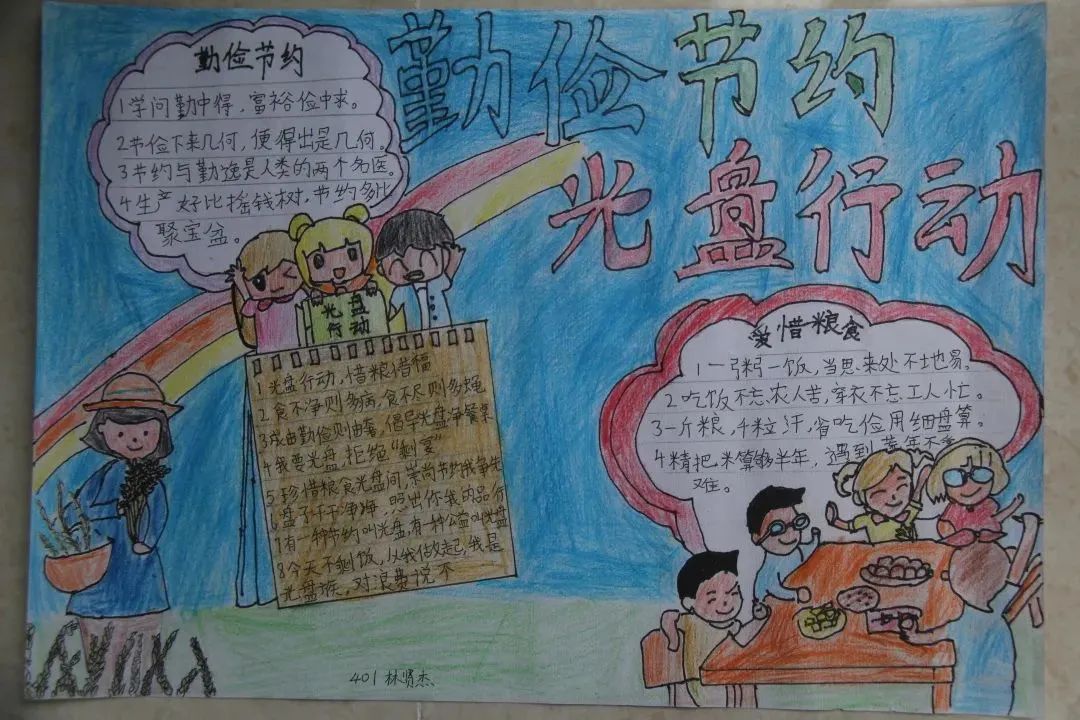 勤俭节约
光盘行动
勤俭节约
1学问勤中得，富裕俭中求。
2节俭下来几何，便得出是几何。
3节约与勤逸是人类的两个名医。
4生产好比摇钱树，节约多比
聚宝盆。
光盘
行动
1光盘行动，惜粮惜福
2食不净则多病，食不尽则多
3成由勤俭则由奢，倡导光盘净餐桌
4我要光盘，拒绝“剩宴”
5珍惜粮食光盘间，崇尚节约我争先
6盘子干干净净，照出你我的品行
7有一种节约叫光盘，有一种公益叫光盘
8今天不剩饭，从我做起，我是
光盘族，对浪费说不
爱惜粮食
1一粥一饭，当思来处不地易。
2吃饭不忘农人苦，穿衣不忘工人忙。
3一斤粮，千粒汗，省吃俭用细盘算。
4精把米算够半年，遇到荒年不
难。
401 林贤杰